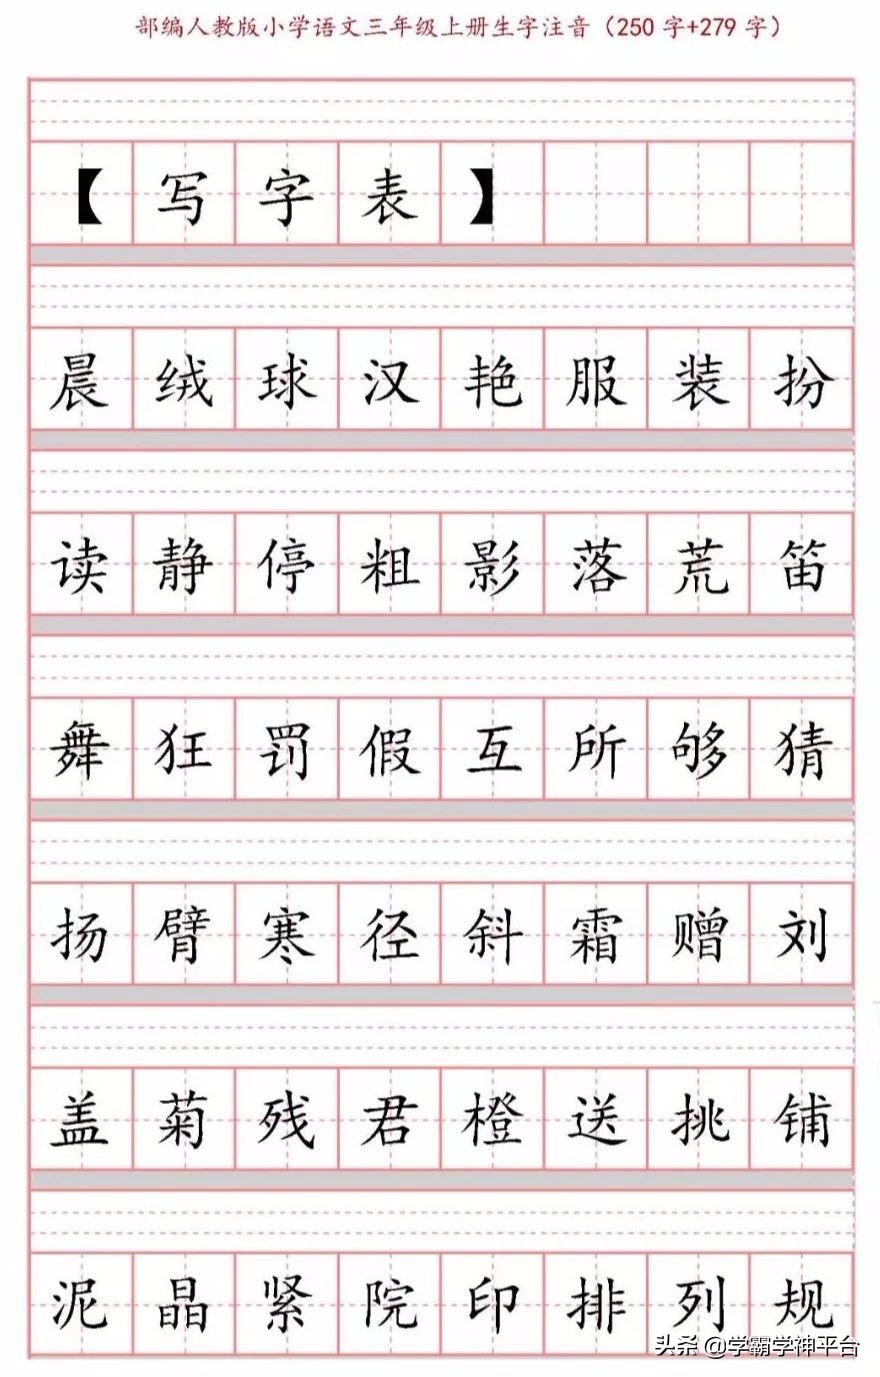 部编人教版小学语文三年级上册生字注音（250 字+279 字）
【写字表】
晨绒球汉艳服装扮
读静停粗影落荒笛
舞狂罚假互所够猜
扬臂寒径斜霜赠刘
盖菊残君橙送挑铺
泥晶紧院印排列规
头条 @学霸学神平台